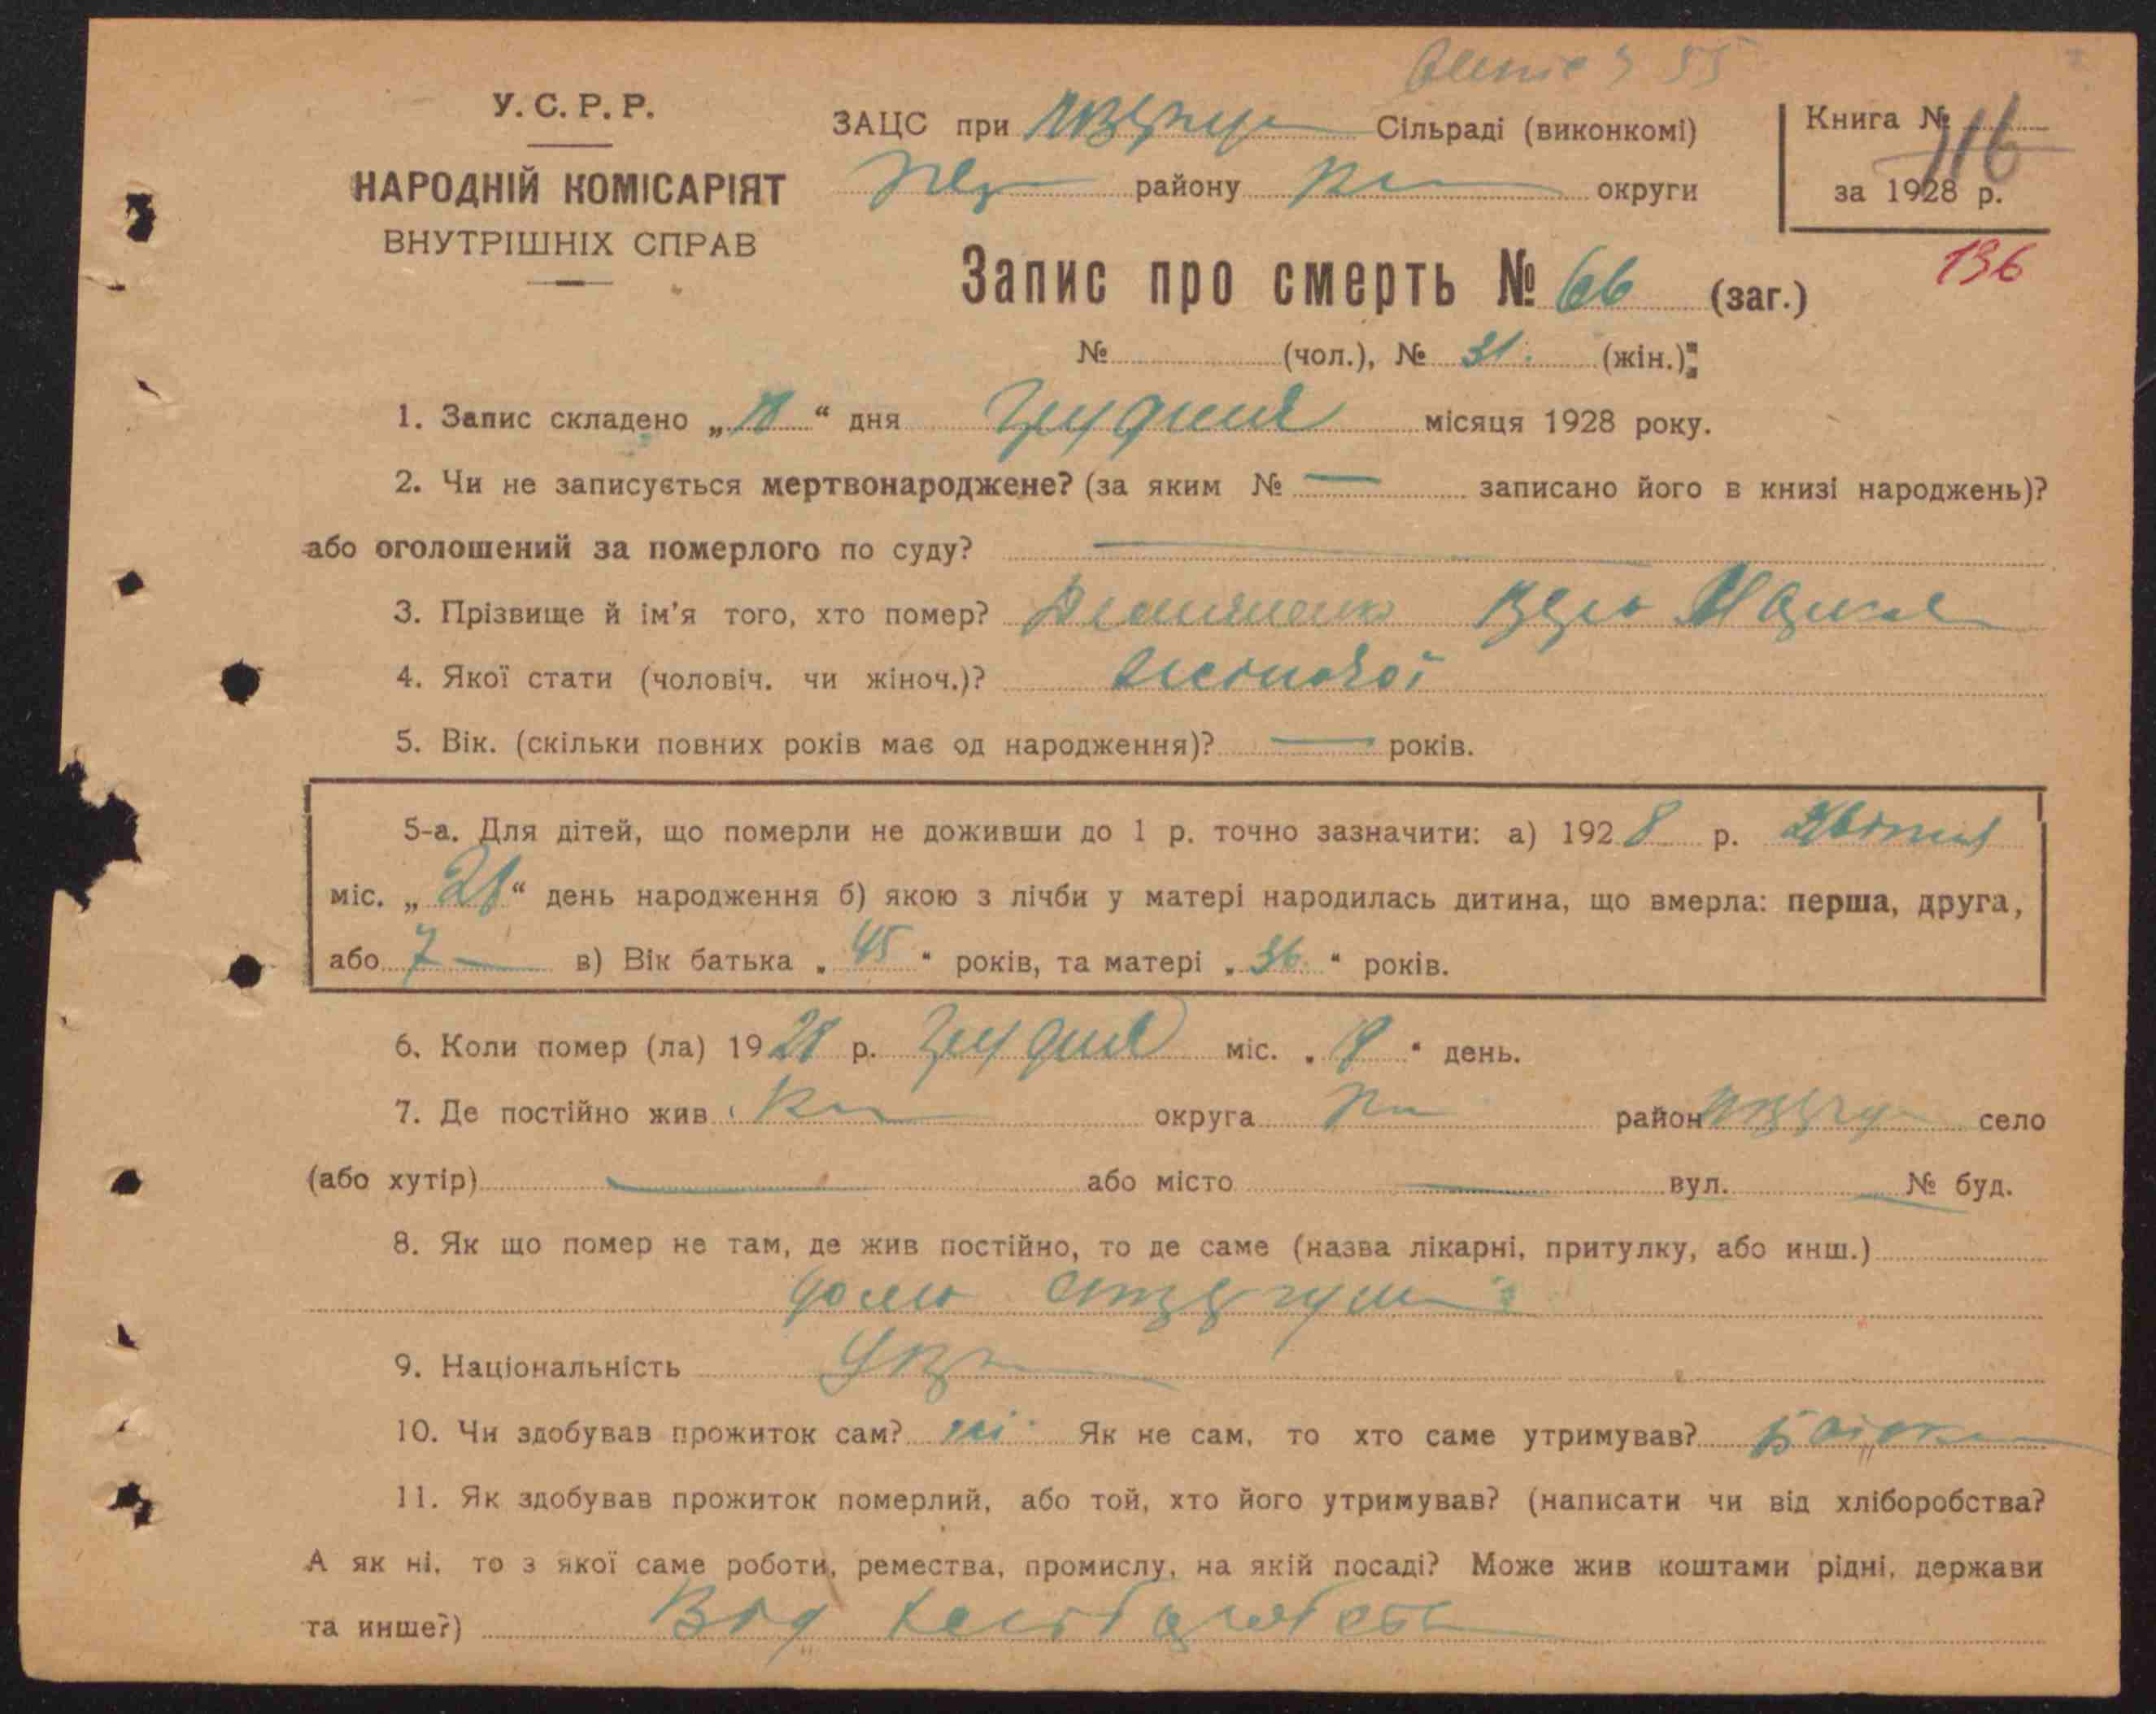 У. С. Р. Р.
НАРОДНІЙ КОМІСАРІЯТ
ВНУТРІШНІХ СПРАВ
ЗАЦС при Сільраді (виконкомі)
району округи
Книга № 116
за 1928 р.
136
Запис про смерть № 66 (заг.)
№ (чол.), № 31. (жін.)
1. Запис складено „ “ дня Грудня місяця 1928 року.
2. Чи не записується мертвонароджене? (за яким № — записано його в книзі народжень)?
або оголошений за померлого по суду? —
3. Прізвище й ім'я того, хто помер?
4. Якої стати (чоловіч. чи жіноч.)? жіночої
5. Вік. (скільки повних років має од народження)? — років.
5-а. Для дітей, що померли не доживши до 1 р. точно зазначити: а) 1928 р. Квітня
міс. „28“ день народження б) якою з лічби у матері народилась дитина, що вмерла: перша, друга,
або 7 — в) Вік батька „45“ років, та матері „36“ років.
6. Коли помер (ла) 1928 р. Грудня міс. „ “ день.
7. Де постійно жив округа район село
(або хутір) — або місто — вул. — № буд.
8. Як що помер не там, де жив постійно, то де саме (назва лікарні, притулку, або инш.)
9. Національність Укр
10. Чи здобував прожиток сам? ні Як не сам, то хто саме утримував? Батьк
11. Як здобував прожиток померлий, або той, хто його утримував? (написати чи від хліборобства?
А як ні, то з якої саме роботи, ремества, промислу, на якій посаді? Може жив коштами рідні, держави
та инше?) Від хліборобств